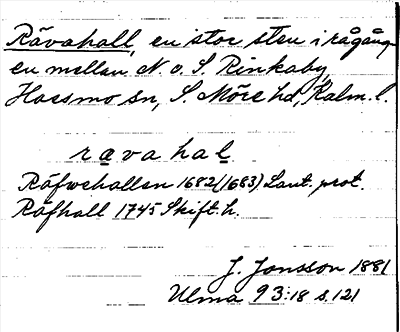 Rävahall, en stor sten i rågång-
en mellan N. o. S. Rinkaby,
Hossmo sn, S. Möre hd, Kalm. l.
r a v a ha l
Räfwehallen 1682 (1683) Lant. prot.
Räfhall 1745 Skift. h.
J. Jonsson 1881
Ulma 93:18 s. 121